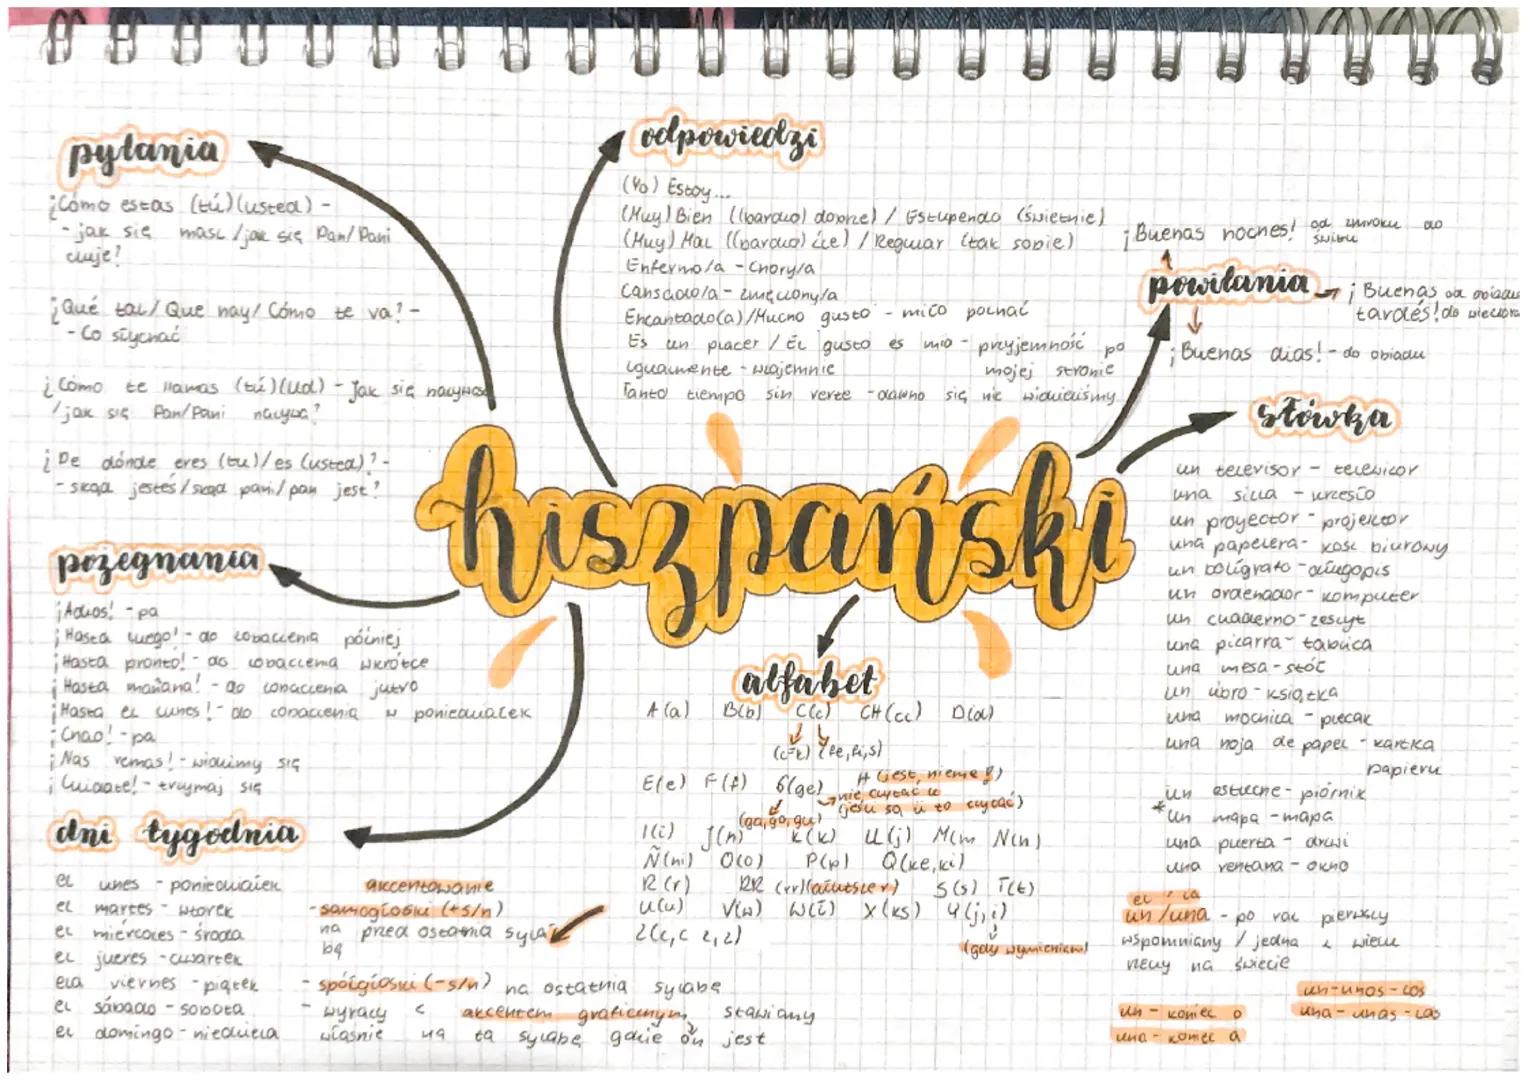 pytania
¿Cómo estas (tú)(usted) -
- jak się masz /jak się Pan/Pani
czuje?
¿Qué tal/ Que hay/ Cómo te va? -
- Co słychać
¿Cómo te llamas (tú)(Ud) - Jak się nazywasz
/jak się Pan/Pani nazywa?
¿De dónde eres (tu)/es (usted)? -
- skąd jesteś/skąd pani/pan jest?
odpowiedzi
(Yo) Estoy...
(Muy) Bien ((bardzo) dobrze) / Estupendo (świetnie)
(Muy) Mal ((bardzo) źle) / Regular (tak sobie)
Enfermo/a - chory/a
Cansado/a - zmęczony/a
Encantado(a)/Mucho gusto - miło poznać
Es un placer / El gusto es mio - przyjemność po
mojej stronie
Igualmente - wzajemnie
Tanto tiempo sin verte - dawno się nie widzieliśmy
¡Buenas noches! od zmroku do
świtu
powitania
¡Buenas od obiadu
tardes! do wieczora
¡Buenas dias! - do obiadu
słówka
un televisor - telewizor
una silla - krzesło
un proyector - projektor
una papelera - kosz biurowy
un bolígrafo - długopis
un ordenador - komputer
un cuaderno - zeszyt
una pizarra - tablica
una mesa - stół
un libro - książka
una mochila - plecak
una hoja de papel - kartka
papieru
un estuche - piórnik
* un mapa - mapa
una puerta - drzwi
una ventana - okno
el / la
un /una - po raz pierwszy
wspomniany / jedna z wielu
rzeczy na świecie
un - unos - los
una - unas - las
un - koniec o
una - koniec a
hiszpański
pożegnania
¡Adios! - pa
¡Hasta luego! - do zobaczenia później
¡Hasta pronto! - do zobaczenia wkrótce
¡Hasta mañana! - do zobaczenia jutro
¡Hasta el lunes! - do zobaczenia w poniedziałek
¡Chao! - pa
¡Nas vemos! - widzimy się
¡Cuidate! - trzymaj się
dni tygodnia
el lunes - poniedziałek
el martes - wtorek
el miercoles - środa
el jueves - czwartek
ela viernes - piątek
el sábado - sobota
el domingo - niedziela
akcentowanie
- samogłoski (+s/n)
na przed ostatnią syla
bę
- spółgłoski (-s/n) na ostatnią sylabę
- wyrazy z akcentem graficznym stawiamy
właśnie na tą sylabę gdzie on jest
alfabet
A (a) B(b) C(c) CH (cz) D(d)
(c=k)
E(e) F (f) G(ge) H (jest nieme!)
nie czytać
(ga, go, gu)
I(i) J(h) K(k) LL(j) M(m N(n)
Ñ(ni) O(o) P(p) Q(ke,ki)
R (r) RR (rr)(dłuższe r) S(s) T(t)
U(u) V(w) W(ł) X(ks) Y(j,i)
(gdy wymieniam)